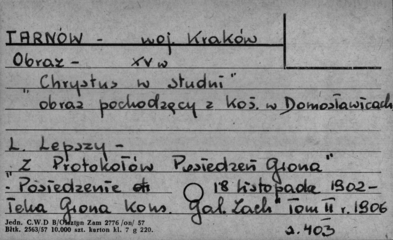 TARNÓW - woj Kraków
Obraz - XV w
"Chrystus w studni"
obraz pochodzący z Koś. w Domosławicach
L. Lepszy -
"Z Protokołów Posiedzeń Grona"
"Posiedzenie 18 listopada 1902 -
Teka Grona Kons. Gal. Zach" Tom II r. 1906
s. 403
Jedn. C.W.D B/Olsztyn Zam 2776/on/57
Bltk. 2563/57 10.000 szt. karton kl. 7 g 220.